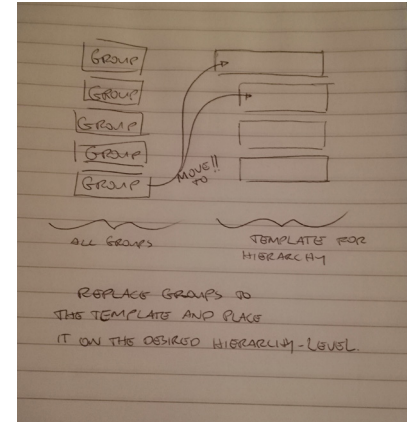 GROUP
GROUP
GROUP
GROUP
GROUP
MOVE!!
TO
ALL GROUPS
TEMPLATE FOR
HIERARCHY
REPLACE GROUPS TO
THE TEMPLATE AND PLACE
IT ON THE DESIRED HIERARCHY-LEVEL.